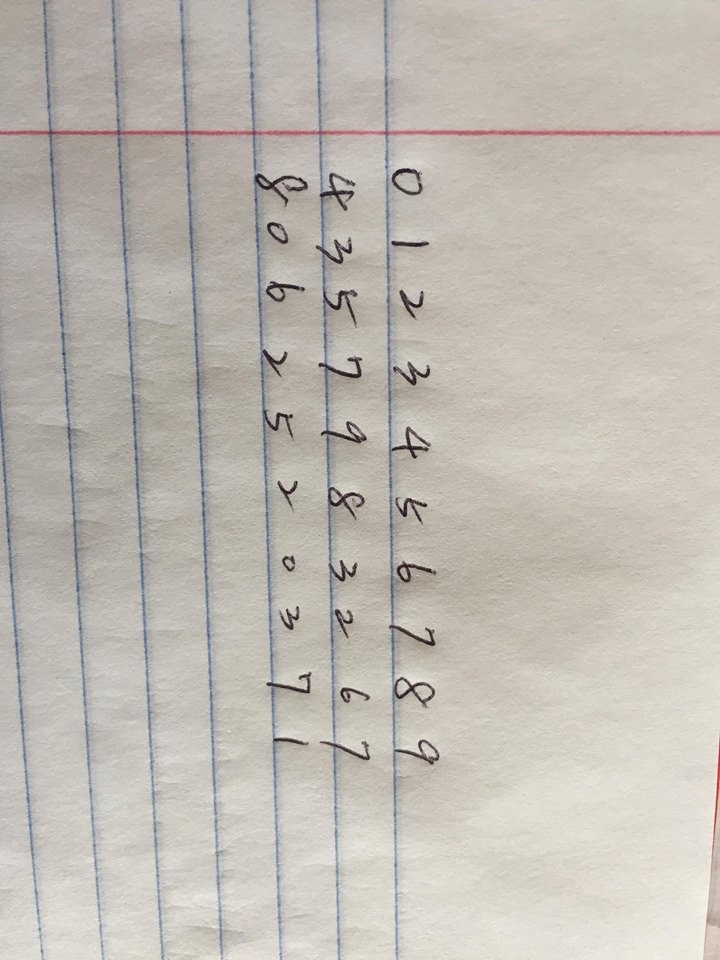 0 1 2 3 4 5 6 7 8 9
4 3 5 7 9 8 3 2 6 7
8 0 6 2 5 2 0 3 7 1